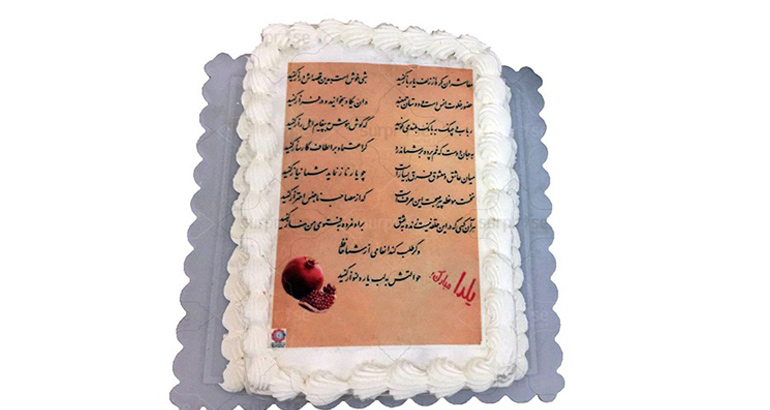 معاشران گره از زلف یار باز کنید شبی خوش است بدین قصه‌اش دراز کنید
حضور خلوت انس است و دوستان جمعند و ان یکاد بخوانید و در فراز کنید
رباب و چنگ به بانگ بلند می‌گویند که گوش هوش به پیغام اهل راز کنید
به جان دوست که غم پرده بر شما ندرد گر اعتماد بر الطاف کارساز کنید
میان عاشق و معشوق فرق بسیار است چو یار ناز نماید شما نیاز کنید
نخست موعظه پیر صحبت این حرف است که از مصاحب ناجنس احتراز کنید
هر آن کسی که در این حلقه نیست زنده به عشق بر او نمرده به فتوی من نماز کنید
وگر طلب کند انعامی از شما حافظ
حوالتش به لب یار دلنواز کنید
یلدا مبارک